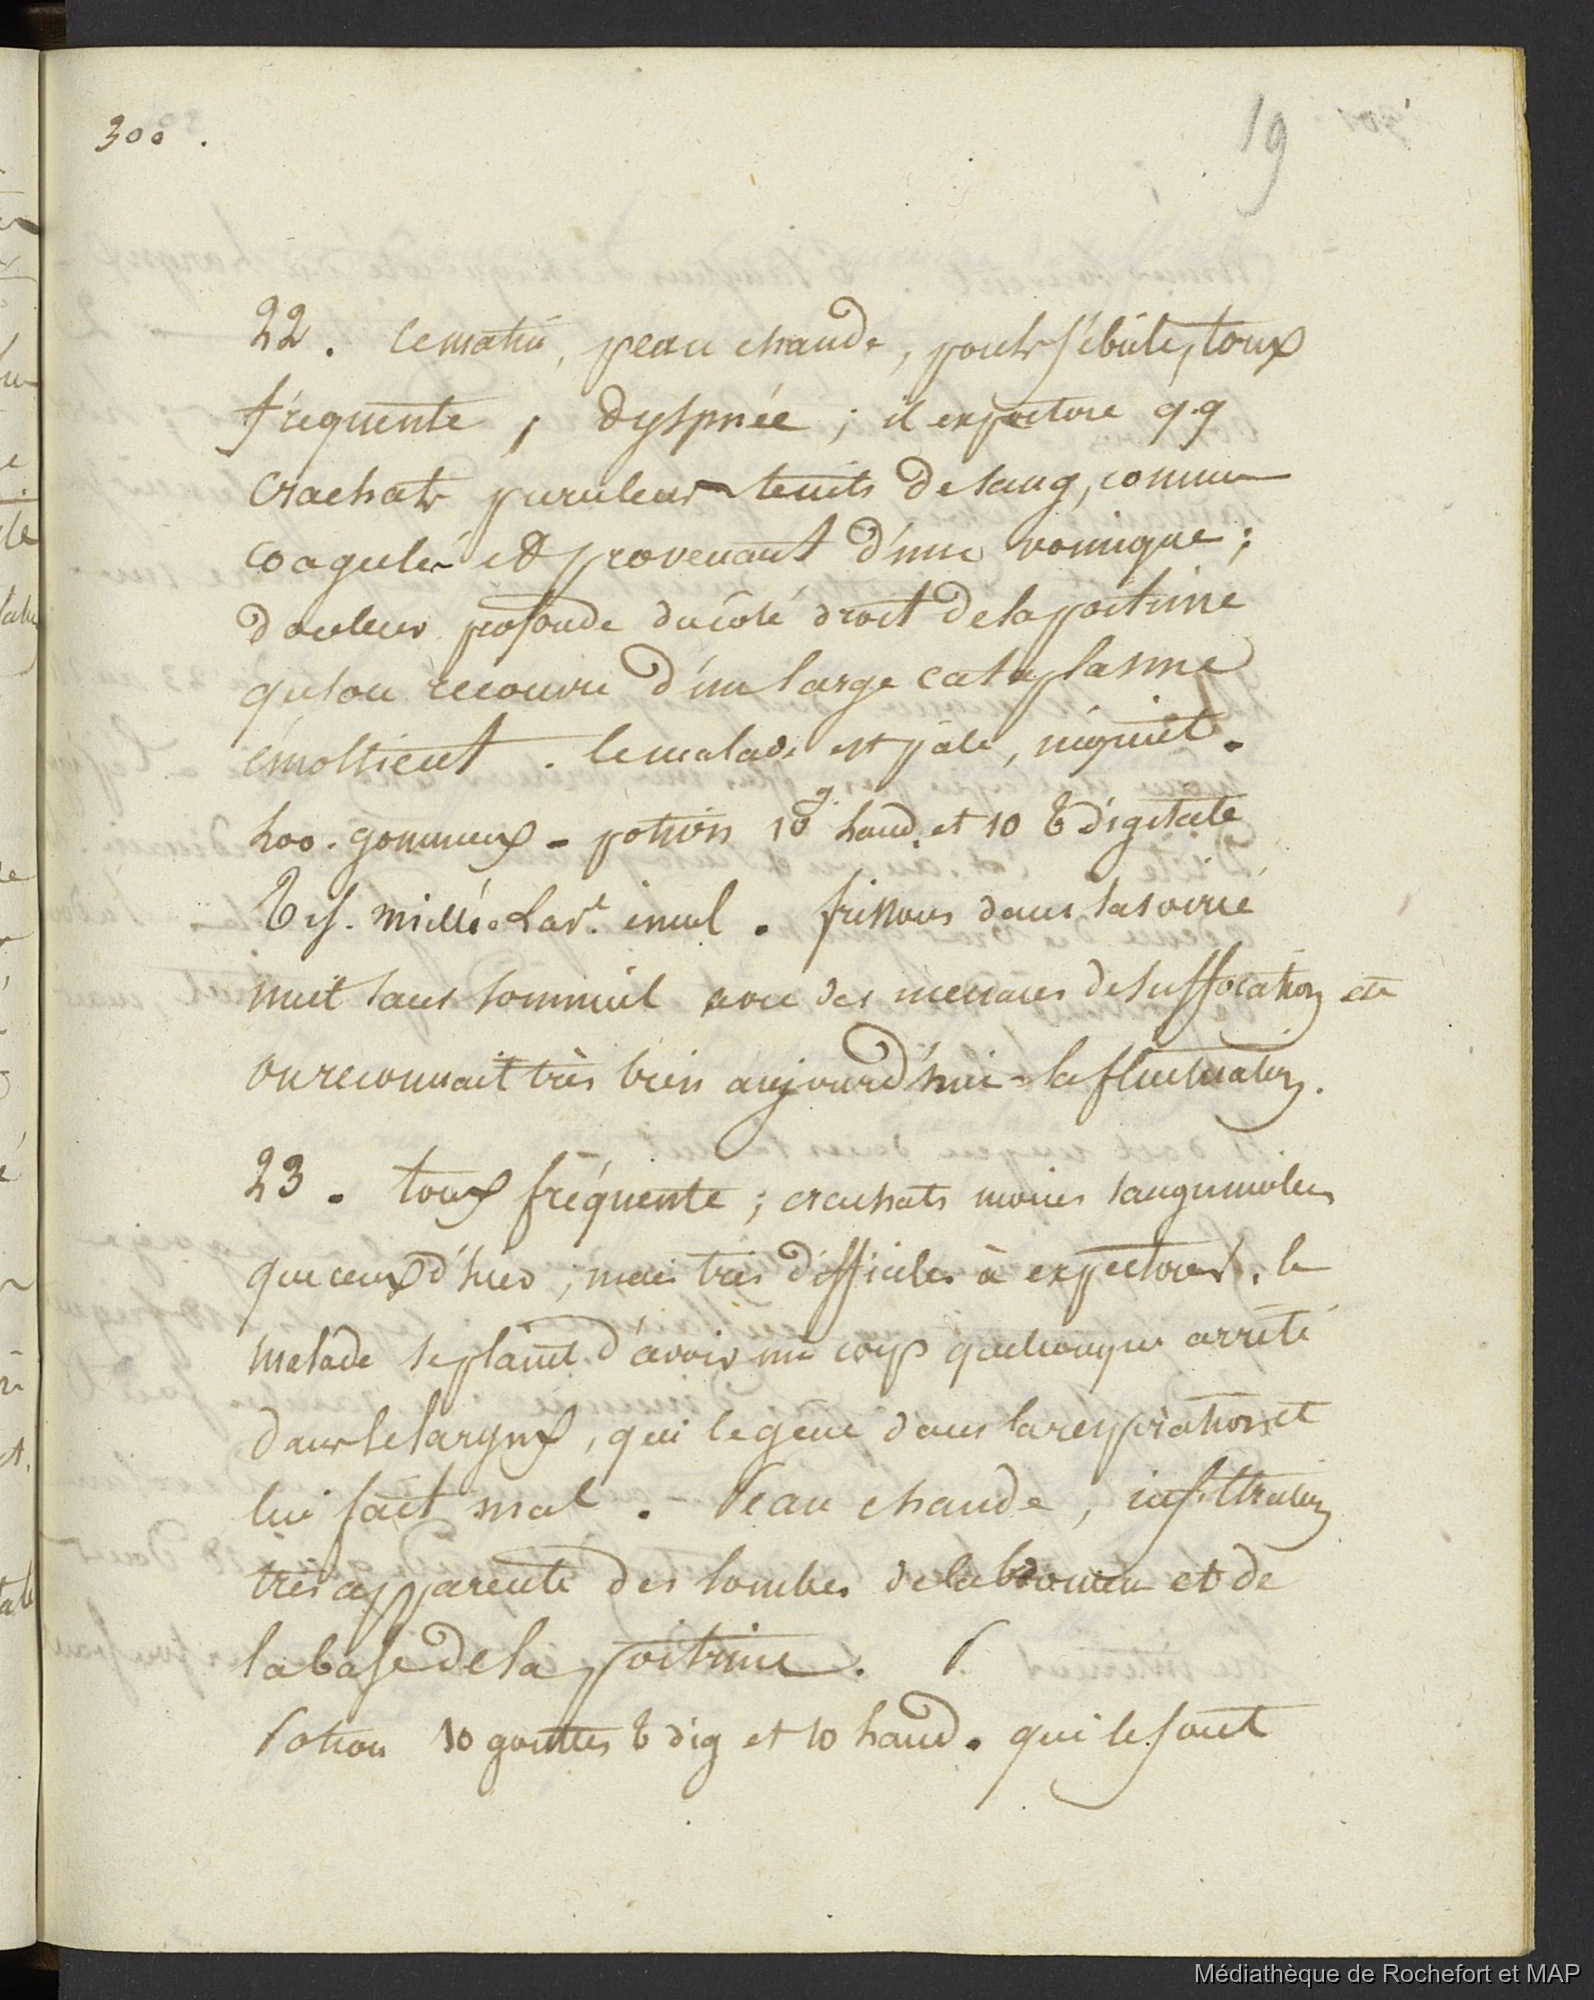 300.
19
22. ce matin, peau chaude, pouls fébrile, toux
fréquente, dyspnée; il expectore q.q
crachats purulens teints de sang, comme
coagulés et provenant d'une vomique;
douleur profonde du coté droit de la poitrine
qu'on recouvre d'un large cataplasme
émollient. le malade est pâle, inquiet.
gommeux - potion 10 g. laud. et 10 digitale
Tis. miellé. Lavt. émol. frissons dans la soirée
nuit sans sommeil avec des menaces de suffocation etc
on reconnait très bien aujourd'hui la fluctuation.
23. toux fréquente; crachats moins sanguinolens
que ceux d'hier; mais très difficiles à expectorer. le
malade se plaint d'avoir un corps quelconque arrêté
dans le larynx, qui le gêne dans la respiration et
lui fait mal. - Peau chaude, infiltration
très apparente des lombes de l'abdomen et de
la base de la poitrine.
Potion 10 gouttes dig et 10 laud. qui le font
Médiathèque de Rochefort et MAP